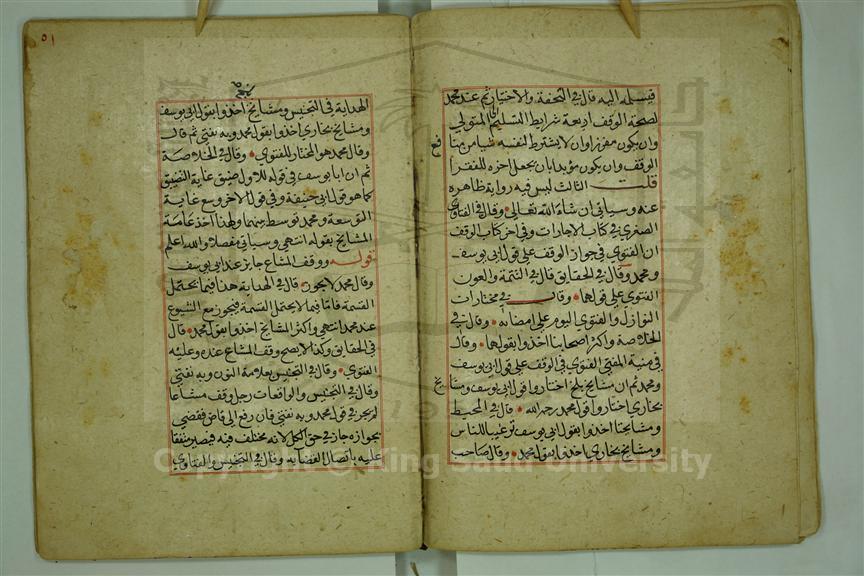 فيسلمه اليه قال في التحفة والاختيار ثم عند محمد
لصحة الوقف اربعة شرايط التسليم الى المتولي
وان يكون مفرزا وان لا يشترط لنفسه شيا من منا
فع
الوقف وان يكون مؤبدا بان يجعل اخره للفقرا
قلت الثالث ليس فيه رواية ظاهرة
عنه وسياتي ان شاء الله تعالى وقال في الفتاوى
الصغرى في كتاب الاجارات وفي اخر كتاب الوقف
ان الفتوى في جواز الوقف على قول ابي يوسف
ومحمد وقال في الحقايق قال في التتمة والعون
الفتوى على قولهما وقال في مختارات
النوازل والفتوى اليوم على امضائه وقال في
الخلاصة واكثر اصحابنا اخذوا بقولهما وقال
في منية المفتي الفتوى في الوقف على قول ابي يوسف
ومحمد ثم ان مشايخ بلخ اختاروا قول ابي يوسف ومشا
يخ
بخارى اختاروا قول محمد رحمه الله قال في المحيط
ومشايخنا اخذوا بقول ابي يوسف ترغيبا للناس
ومشايخ بخارى اخذوا بقول محمد وقال صاحب
٥١
الهداية في التجنيس ومشايخ اخذوا بقول ابي يوسف
ومشايخ بخارى اخذوا بقول محمد وبه نفتي ثم قال
وقال محمد هو المختار للفتوى وقال في الخلاصة
ثم ان ابا يوسف في قوله الاول ضيق غاية التضيق
كما هو قول ابي حنيفة وفي قوله الاخر وسع غاية
التوسعة ومحمد توسط بينهما ولهذا اخذ عامة
المشايخ بقوله انتهى وسياتي مفصلا والله اعلم
قوله ووقف المشاع جايز عند ابي يوسف
وقال محمد لا يجوز قال في الهداية هذا فيما يحتمل
القسمة فاما فيما لا يحتمل القسمة فيجوز مع الشيوع
عند محمد انتهى واكثر المشايخ اخذوا بقول محمد قال
في الحقايق وكذا لا يصح وقف المشاع عنده وعليه
الفتوى وقال في التجنيس بعلامة النون وبه نفتي
وقال في التجنيس والواقعات رجل وقف مشاعا
لم يجز في قول محمد وبه نفتي فان رفع الى قاض فقضى
بجوازه جاز في حق الكل لانه مختلف فيه فيصير متفقا
عليه باتصال القضا به وقال في التجنيس والفتاوى
Copyright © King Saud University